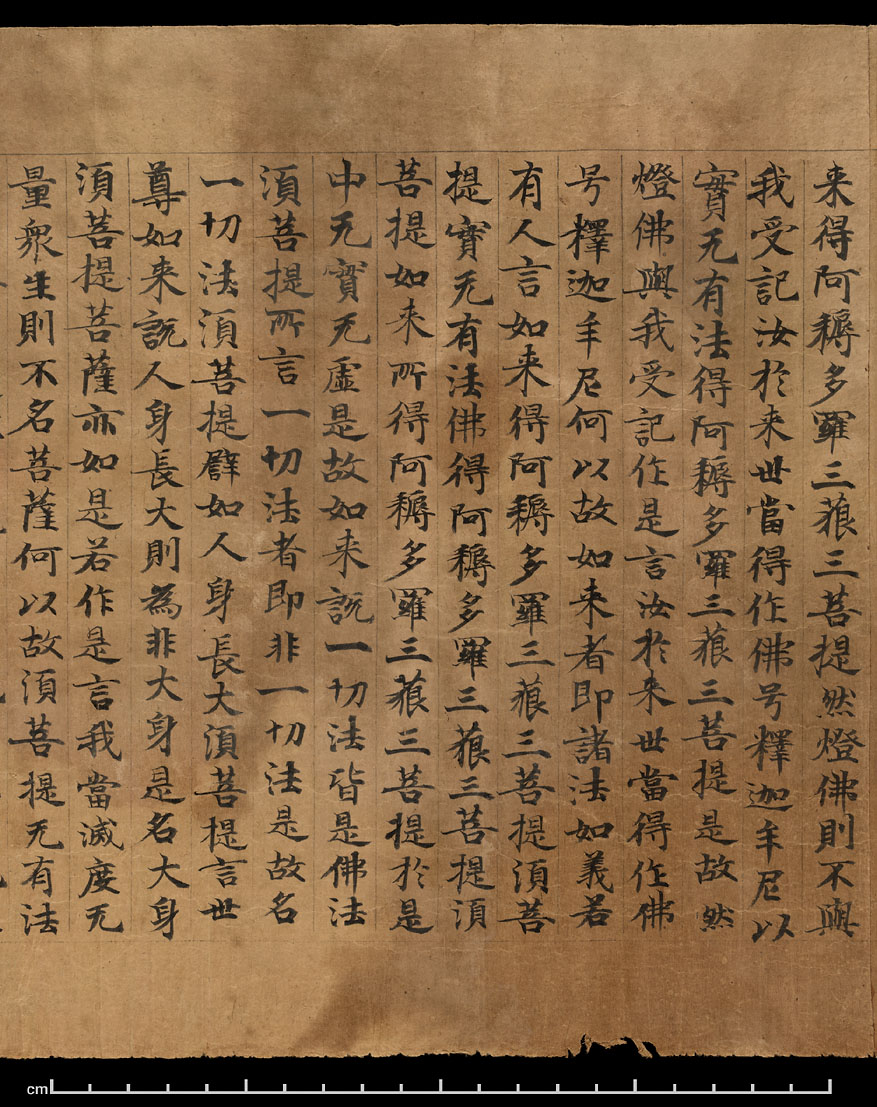 来得阿耨多羅三藐三菩提然燈佛則不與
我受記汝於来世當得作佛号釋迦牟尼以
實无有法得阿耨多羅三藐三菩提是故然
燈佛與我受記作是言汝於来世當得作佛
号釋迦牟尼何以故如来者即諸法如義若
有人言如来得阿耨多羅三藐三菩提須菩
提實无有法佛得阿耨多羅三藐三菩提須
菩提如来所得阿耨多羅三藐三菩提於是
中无實无虛是故如来說一切法皆是佛法
須菩提所言一切法者即非一切法是故名
一切法須菩提譬如人身長大須菩提言世
尊如来說人身長大則為非大身是名大身
須菩提菩薩亦如是若作是言我當滅度无
量衆生則不名菩薩何以故須菩提无有法
cm